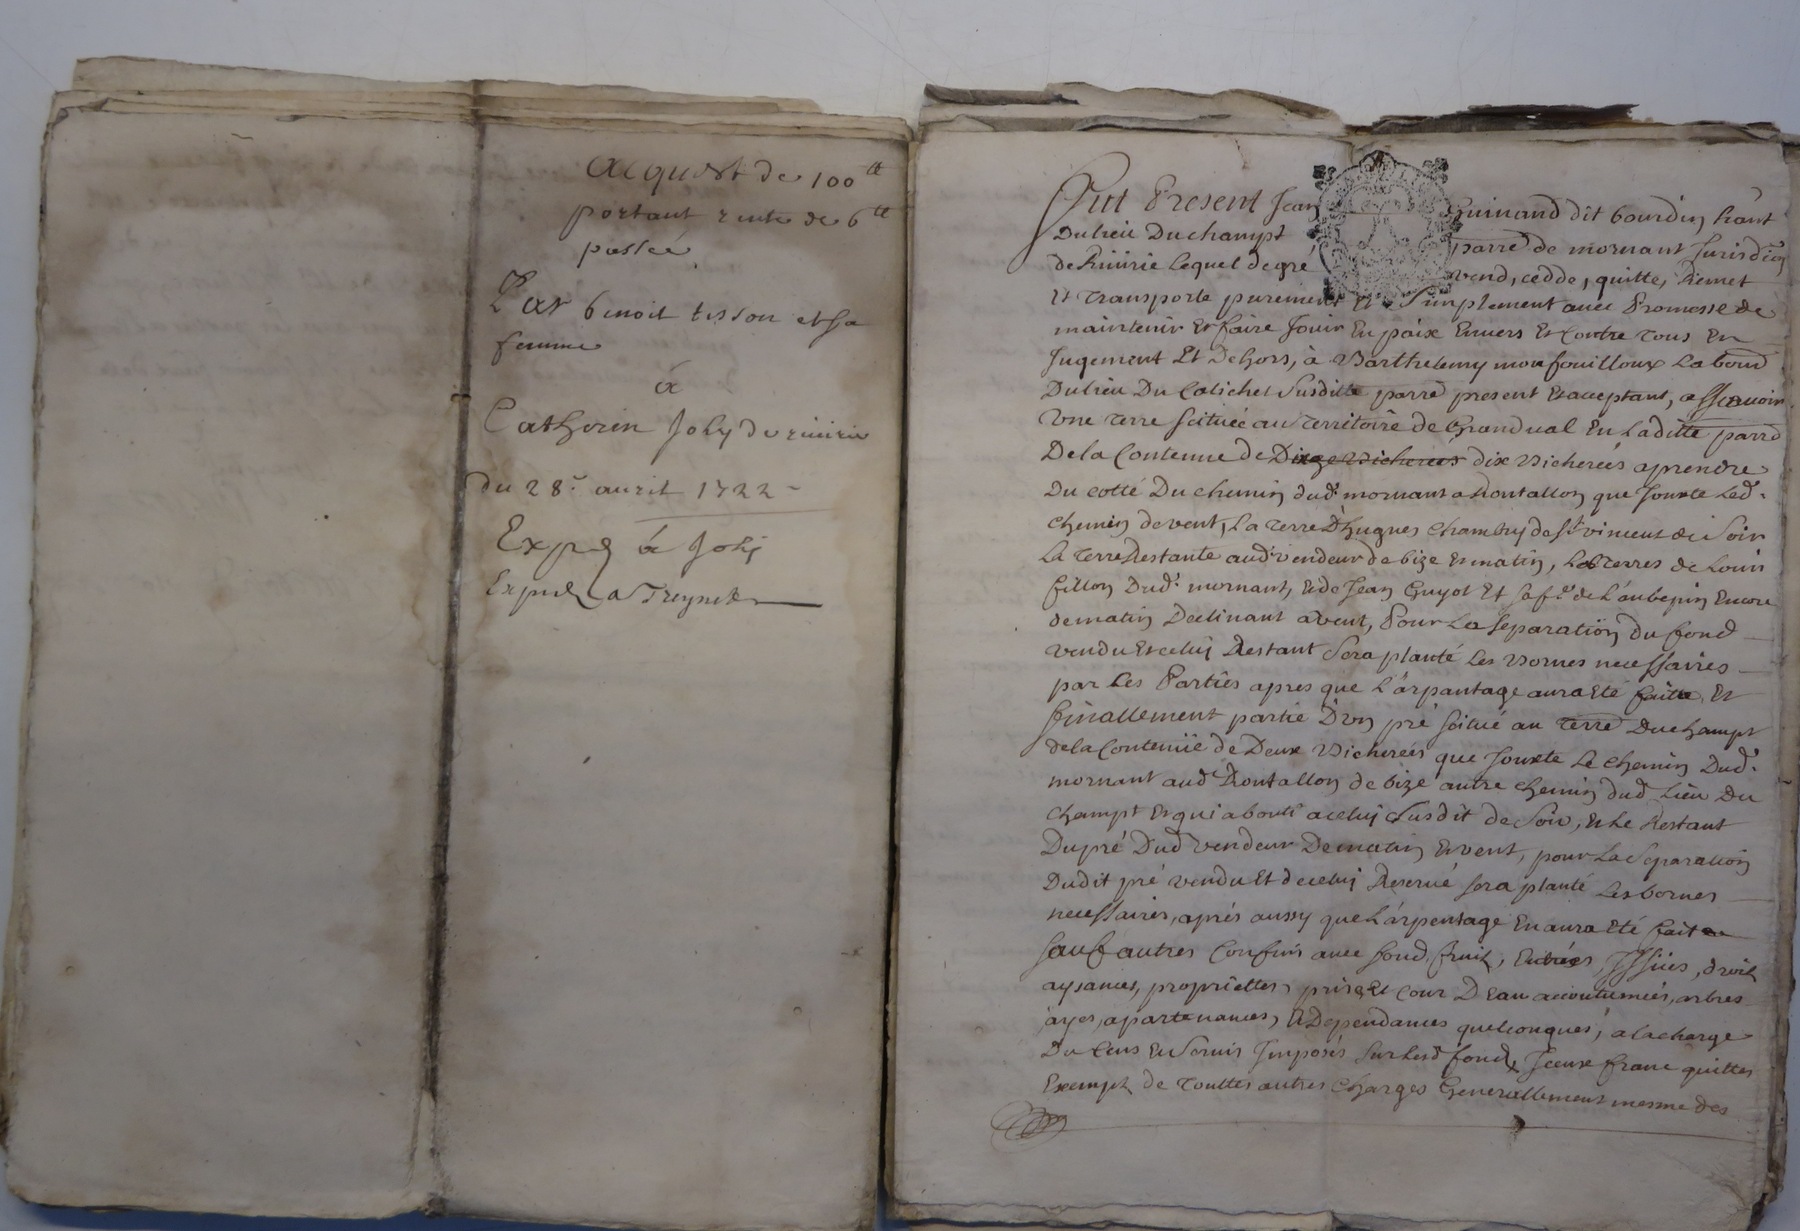 Acquest de 100tt
portant rente de 6tt
passée
Par benoit tisson et sa
femme
à
Catherin Joly de riuirie
du 28e. auril 1722
Exp a Joly
a Treynet
Fut Present Jean Guinand dit bourdin h'ant
Du lieu Du champt parre de mornant Jurisdion
de Riuirie lequel de gré vend, cedde, quitte, Remet
Et Transporte purement Et Simplement auec Promesse de
maintenir Et faire Jouir En paix Enuers Et Contre Tous En
Jugement Et Dehors, à Barthelemy monfouilloux Laboud
Du lieu Du Susditte parre present Et acceptant, assauoir
Vne Terre scituée au Territoire de Grandual En Laditte parre
De la Contenue de dix Bicherées aprendre
Du cotté Du chemin dud. mornant a Rontallon que Jouxte Led.
chemin de vent, La Terre D'hugues Chambry de St vincent de Soir
La Terre Restante aud. vendeur de bize Et matin, Les Terres de Louis
fillon Dud. mornant, Et de Jean Guyot Et sa fe. de L'aubepin Encore
de matin Declinant a vent, Pour La Separation Du fond
vendu Et celuy Restant Sera planté Les Bornes necessaires
par Les Parties apres que L'arpantage aura Eté faitte, Et
finallement partie D'vn pré scitué au Terre Du champt
de la Contenüe de Deux Bicherées que Jouxte Le chemin Dud.
mornant aud. Rontallon de bize autre chemin dud. Lieu Du
champt Et qui abouti a celuy Susdit de Soir, Et Le Restant
Du pré Dud. vendeur De matin Et vent, pour La Separation
Dudit pré vendu Et de celuy Reserué sera planté Les bornes
necessaires, aprés aussy que L'arpentage En aura Eté fait
sauf autres Confins auec fond, fruit, Entrées, Issües, droit
aysances, propriettes, prise Et Cour D'Eau accoutumées, arbres
ayes, apartenances, & Dependances quelconques, a la charge
Du Cens Et Seruis Imposés Sur Lesd. fond, Iceux franc quittes
Exempt de Touttes autres Charges Generallement mesme des